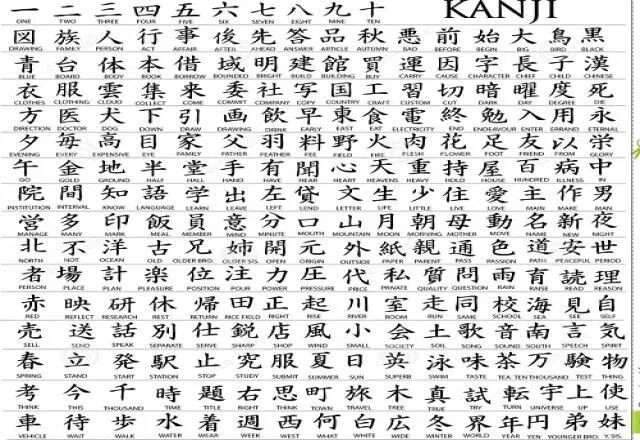 一 二 三 四 五 六 七 八 九 十 KANJI
ONE TWO THREE FOUR FIVE SIX SEVEN EIGHT NINE TEN
図 族 人 行 事 後 先 答 品 秋 悪 前 始 大 鳥 黒
DRAWING FAMILY PERSON ACT AFFAIR AFTER AHEAD ANSWER ARTICLE AUTUMN BAD BEFORE BEGIN BIG BIRD BLACK
青 台 体 本 借 域 明 建 館 買 運 因 字 長 子 漢
BLUE BOARD BODY BOOK BORROW BOUNDED BRIGHT BUILD BUILDING BUY CARRY CAUSE CHARACTER CHIEF CHILD CHINESE
衣 服 雲 集 来 委 社 写 国 工 習 切 暗 曜 度 死
CLOTHES CLOTHING CLOUD COLLECT COME COMMIT COMPANY COPY COUNTRY CRAFT CUSTOM CUT DARK DAY DEGREE DIE
方 医 犬 下 引 画 飲 早 東 食 電 終 勉 入 用 永
DIRECTION DOCTOR DOG DOWN DRAW DRAWING DRINK EARLY EAST EAT ELECTRICITY END ENDEAVOUR ENTER ERRAND ETERNAL
夕 毎 高 目 家 父 羽 料 野 火 肉 花 足 友 以 栄
EVENING EVERY EXPENSIVE EYE FAMILY FATHER FEATHER FEE FIELD FIRE FLESH FLOWER FOOT FRIEND FROM GLORY
午 金 地 半 堂 手 有 聞 心 天 重 持 屋 百 病 中
GO GOLD GROUND HALF HALL HAND HAVE HEAR HEART HEAVENS HEAVY HOLD HOUSE HUNDRED ILLNESS IN
院 間 知 語 学 出 左 貸 文 生 少 住 愛 主 作 男
INSTITUTION INTERVAL KNOW LANGUAGE LEARN LEAVE LEFT LEND LETTER LIFE LITTLE LIVE LOVE MAIN MAKE MAN
営 多 印 飯 員 意 分 口 山 月 朝 母 動 名 新 夜
MANAGE MANY MARK MEAL MEMBER MIND MINUTE MOUTH MOUNTAIN MOON MORNING MOTHER MOVE NAME NEW NIGHT
北 不 洋 古 兄 姉 開 元 外 紙 親 通 色 道 安 世
NORTH NOT OCEAN OLD OLDER BRO. OLDER SIS. OPEN ORIGIN OUTSIDE PAPER PARENT PASS PASSION PATH PEACEFUL PERIOD
者 場 計 楽 位 注 力 圧 代 私 質 問 雨 育 読 理
PERSON PLACE PLAN PLEASURE POSITION POUR POWER PRESSURE PRICE PRIVATE QUALITY QUESTION RAIN RAISE READ REASON
赤 映 研 休 帰 田 正 起 川 室 走 同 校 海 見 自
RED REFLECT RESEARCH REST RETURN RICE FIELD RIGHT RISE RIVER ROOM RUN SAME SCHOOL SEA SEE SELF
売 送 話 別 仕 鋭 店 風 小 会 土 歌 音 南 言 気
SELL SEND SPEAK SEPARATE SERVE SHARP SHOP WIND SMALL SOCIETY SOIL SONG SOUND SOUTH SPEECH SPIRIT
春 立 発 駅 止 究 服 夏 日 英 泳 味 茶 万 験 物
SPRING STAND START STATION STOP STUDY SUBMIT SUMMER SUN SUPERB SWIM TASTE TEA TEN THOUSAND TEST THING
考 今 千 時 題 右 思 町 旅 木 真 試 転 宇 上 使
THINK THIS THOUSAND TIME TITLE RIGHT THINK TOWN TRAVEL TREE TRUE TRY TURN UNIVERSE UP USE
車 待 歩 水 着 週 西 何 白 広 冬 界 年 円 弟 妹
VEHICLE WAIT WALK WATER WEAR WEEK WEST WHAT WHITE WIDE WINTER WORLD YEAR YEN Y. BRO. Y. SIS.